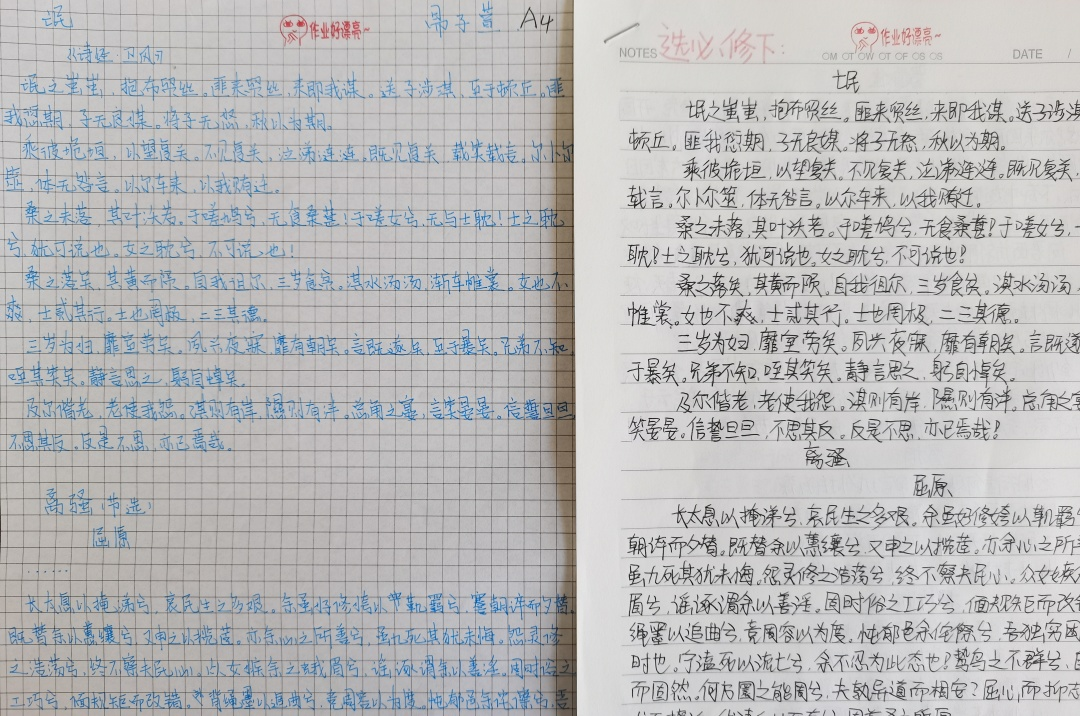 氓
A4
作业好漂亮~
《诗经·卫风》
氓之蚩蚩，抱布贸丝。匪来贸丝，来即我谋。送子涉淇，至于顿丘。匪
我愆期，子无良媒。将子无怒，秋以为期。
乘彼垝垣，以望复关。不见复关，泣涕涟涟。既见复关，载笑载言。尔卜尔
筮，体无咎言。以尔车来，以我贿迁。
桑之未落，其叶沃若。于嗟鸠兮，无食桑葚！于嗟女兮，无与士耽！士之耽
兮，犹可说也。女之耽兮，不可说也！
桑之落矣，其黄而陨。自我徂尔，三岁食贫。淇水汤汤，渐车帷裳。女也不
爽，士贰其行。士也罔极，二三其德。
三岁为妇，靡室劳矣。夙兴夜寐，靡有朝矣。言既遂矣，至于暴矣。兄弟不知，
咥其笑矣。静言思之，躬自悼矣。
及尔偕老，老使我怨。淇则有岸，隰则有泮。总角之宴，言笑晏晏。信誓旦旦，
不思其反。反是不思，亦已焉哉。
离骚（节选）
屈原
……
长太息以掩涕兮，哀民生之多艰。余虽好修姱以鞿羁兮，謇朝谇而夕替。
既替余以蕙纕兮，又申之以揽茝。亦余心之所善兮，虽九死其犹未悔。怨灵修
之浩荡兮，终不察夫民心。众女嫉余之蛾眉兮，谣诼谓余以善淫。固时俗之
工巧兮，偭规矩而改错。背绳墨以追曲兮，竞周容以为度。忳郁邑余侘傺兮，吾
选必修下：
作业好漂亮~
NOTES
DATE /
氓
氓之蚩蚩，抱布贸丝。匪来贸丝，来即我谋。送子涉淇
顿丘。匪我愆期，子无良媒。将子无怒，秋以为期。
乘彼垝垣，以望复关。不见复关，泣涕涟涟。既见复关，
载言。尔卜尔筮，体无咎言。以尔车来，以我贿迁。
桑之未落，其叶沃若。于嗟鸠兮，无食桑葚！于嗟女兮，
耽！士之耽兮，犹可说也。女之耽兮，不可说也！
桑之落矣，其黄而陨。自我徂尔，三岁食贫。淇水汤汤，
帷裳。女也不爽，士贰其行。士也罔极，二三其德。
三岁为妇，靡室劳矣。夙兴夜寐，靡有朝矣。言既遂
于暴矣。兄弟不知，咥其笑矣。静言思之，躬自悼矣。
及尔偕老，老使我怨。淇则有岸，隰则有泮。总角之宴
笑晏晏。信誓旦旦，不思其反。反是不思，亦已焉哉！
离骚
屈原
长太息以掩涕兮，哀民生之多艰。余虽好修姱以鞿羁兮
朝谇而夕替。既替余以蕙纕兮，又申之以揽茝。亦余心之所善
虽九死其犹未悔。怨灵修之浩荡兮，终不察夫民心。众女嫉
眉兮，谣诼谓余以善淫。固时俗之工巧兮，偭规矩而改错
绳墨以追曲兮，竞周容以为度。忳郁邑余侘傺兮，吾独穷困
时也。宁溘死以流亡兮，余不忍为此态也？鸷鸟之不群兮，
而固然。何方圜之能周兮，夫孰异道而相安？屈心而抑志